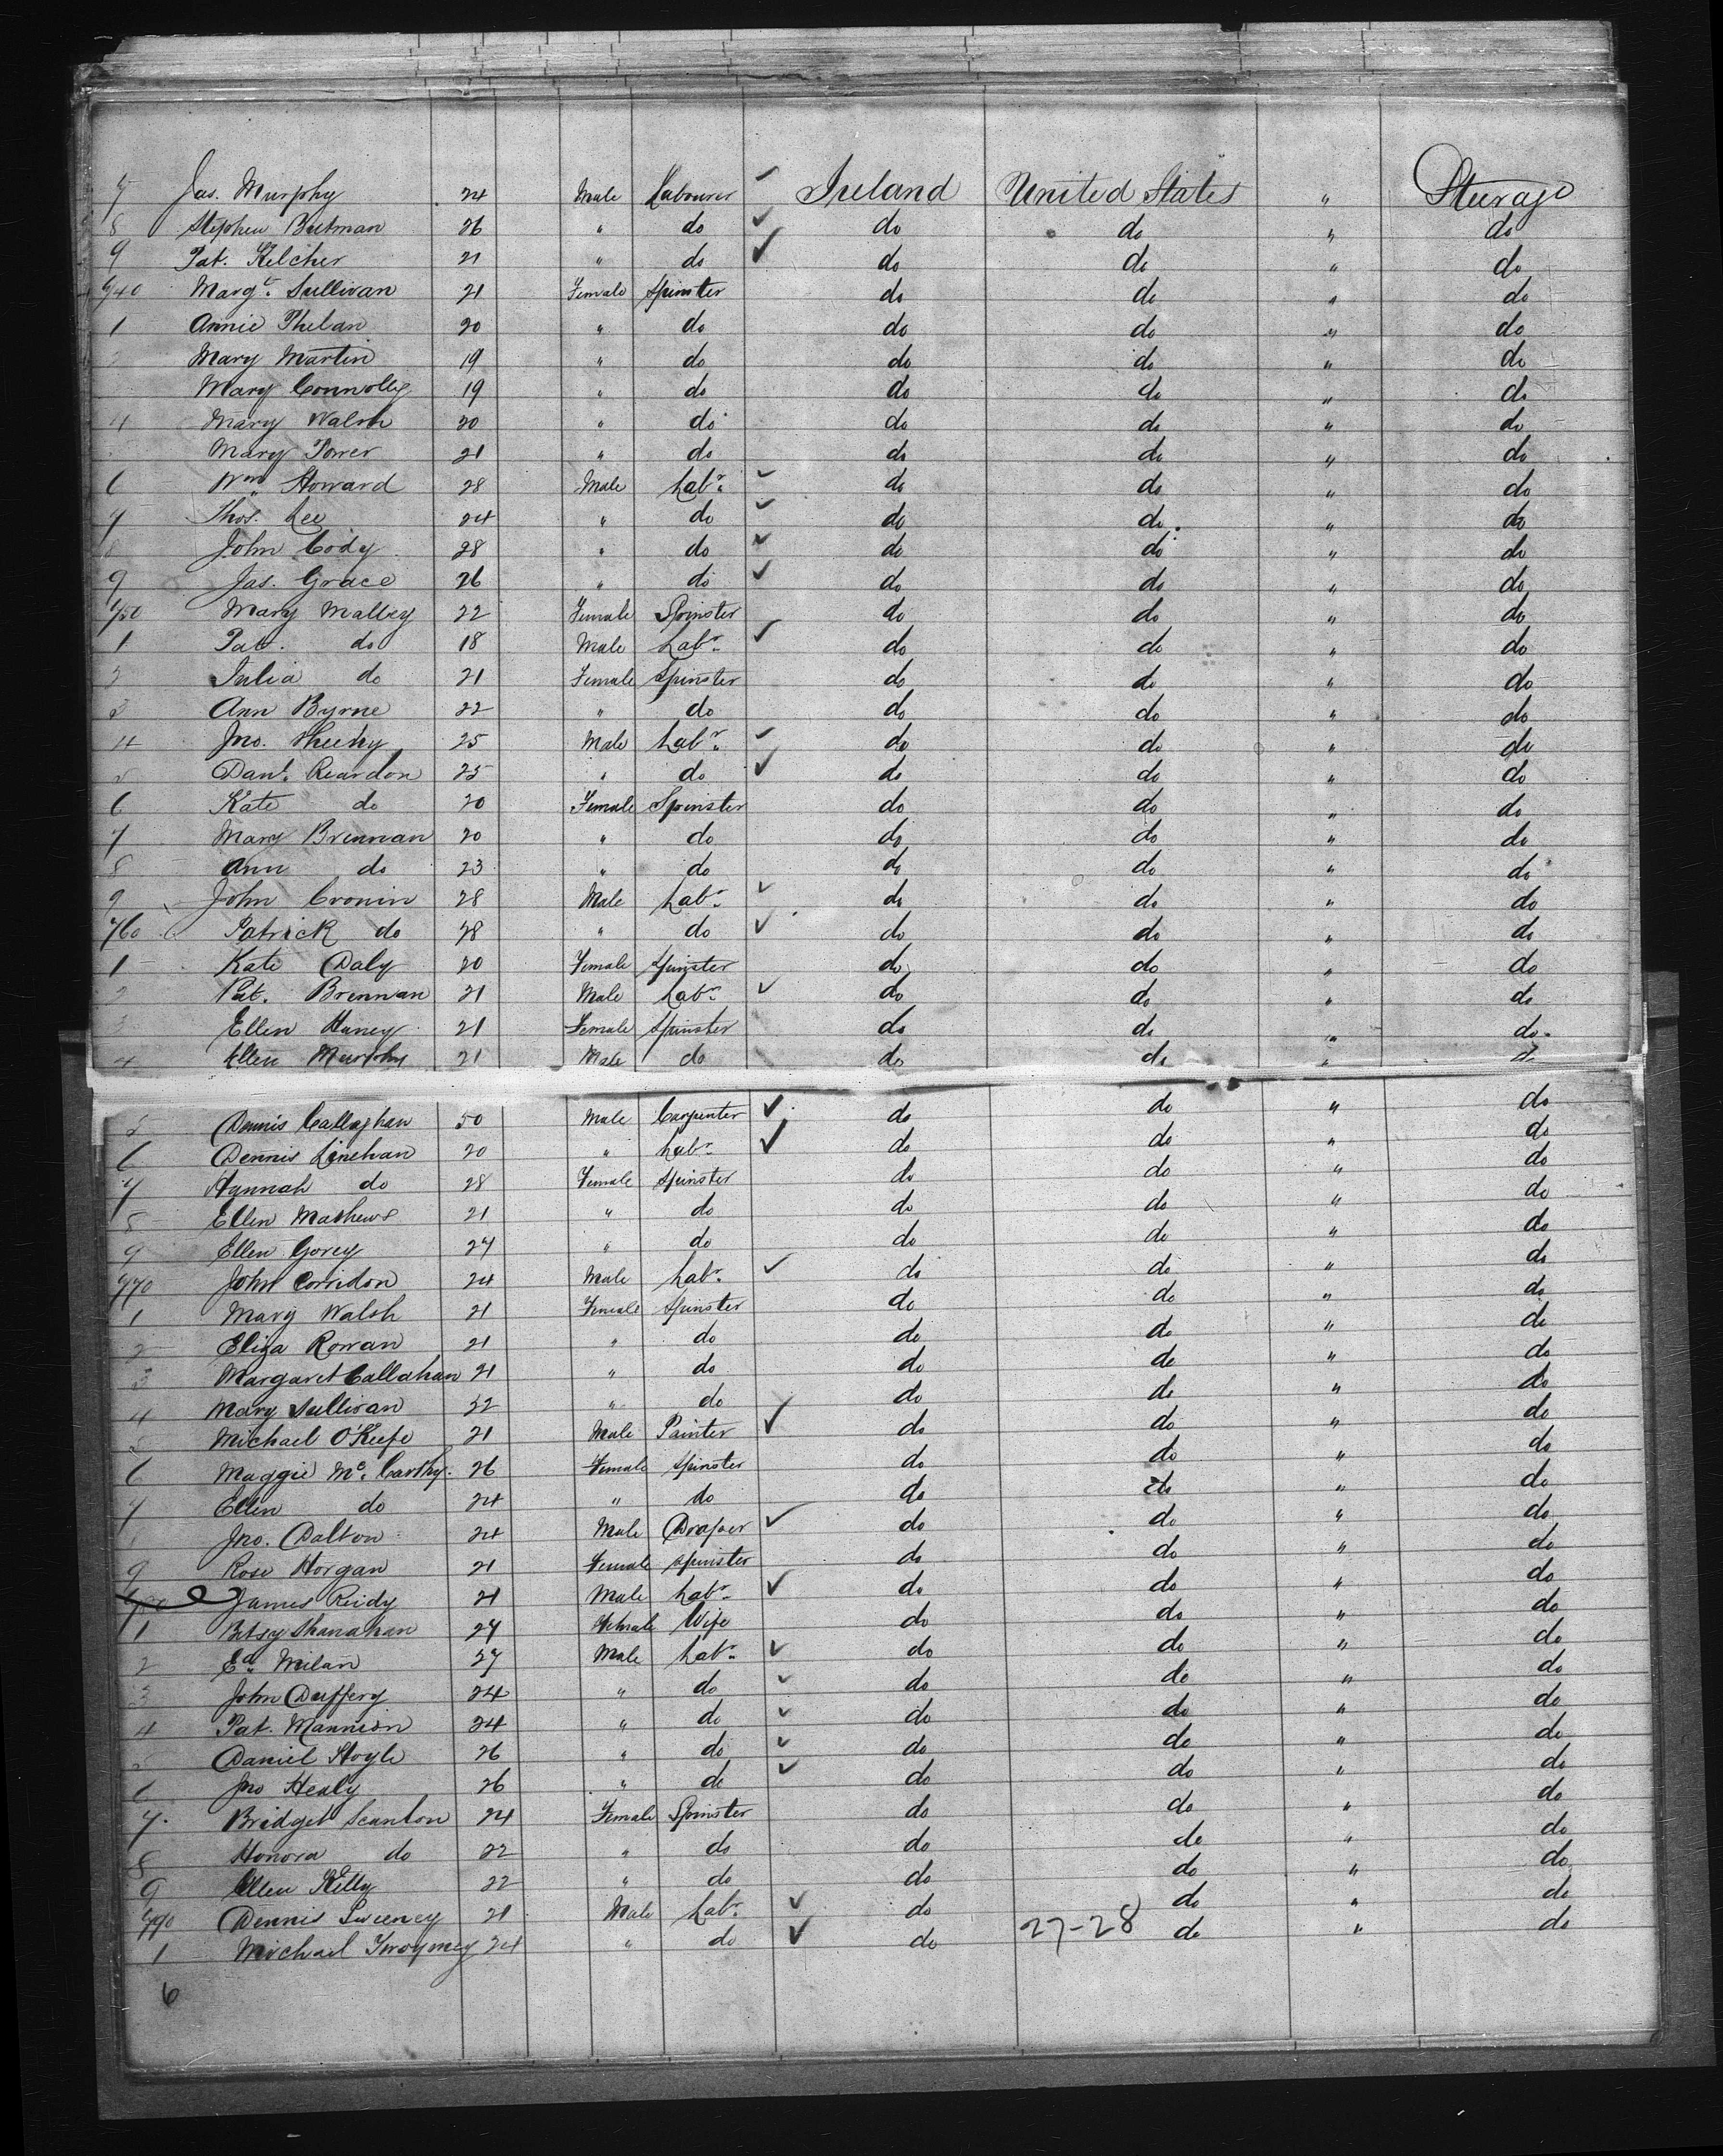 7 Jas. Murphy 24 Male Labourer ✓ Ireland United States " Steerage
8 Stephen Butman 26 " do ✓ do do " do
9 Pat. Kelcher 21 " do ✓ do do " do
740 Margt. Sullivan 21 Female Spinster do do " do
1 Annie Phelan 20 " do do do " do
2 Mary Martin 19 " do do do " do
Mary Connolly 19 " do do do " do
4 Mary Walsh 20 " do do do " do
Mary Power 21 " do do do " do
6 Wm. Howard 28 Male Labr. ✓ do do " do
7 Thos. Lee 24 " do ✓ do do " do
8 John Cody 28 " do ✓ do do " do
9 Jas. Grace 26 " do ✓ do do " do
750 Mary Malley 22 Female Spinster do do " do
1 Pat. do 18 Male Labr. ✓ do do " do
2 Julia do 21 Female Spinster do do " do
3 Ann Byrne 22 " do do do " do
4 Jno. Sheehy 25 Male Labr. ✓ do do " do
5 Danl. Reardon 25 " do ✓ do do " do
6 Kate do 20 Female Spinster do do " do
7 Mary Brennan 20 " do do do " do
8 Ann do 23 " do do do " do
9 John Cronin 28 Male Labr. ✓ do do " do
760 Patrick do 28 " do ✓ do do " do
1 Kate Daly 20 Female Spinster do do " do
2 Pat. Brennan 21 Male Labr. ✓ do do " do
3 Ellen Haney 21 Female Spinster do do " do
4 Ellen Murphy 21 Male do do do " do
5 Dennis Callaghan 50 Male Carpenter ✓ do do " do
6 Dennis Linehan 20 " Labr. ✓ do do " do
7 Hannah do 28 Female Spinster do do " do
8 Ellen Mathews 21 " do do do " do
9 Ellen Gorey 27 " do do do " do
770 John Corridon 24 Male Labr. ✓ do do " do
1 Mary Walsh 21 Female Spinster do do " do
2 Eliza Rowan 21 " do do do " do
3 Margaret Callahan 21 " do do do " do
4 Mary Sullivan 22 " do do do " do
5 Michael O'Keefe 21 Male Painter ✓ do do " do
6 Maggie Mc. Carthy 26 Female Spinster do do " do
7 Ellen do 24 " do do do " do
Jno. Dalton 24 Male Draper ✓ do do " do
9 Rose Horgan 21 Female Spinster do do " do
780 James Reidy 21 Male Labr. ✓ do do " do
1 Betsy Shanahan 27 Female Wife do do " do
2 Ed. Milan 27 Male Labr. ✓ do do " do
3 John Duffery 24 " do ✓ do do " do
4 Pat. Mannion 24 " do ✓ do do " do
5 Daniel Hoyle 26 " do ✓ do do " do
6 Jno Healy 26 " do ✓ do do " do
7 Bridget Scanlon 24 Female Spinster do do " do
8 Honora do 22 " do do do " do
9 Ellen Kelly 22 " do do do " do
790 Dennis Sweeney 21 Male Labr. ✓ do do " do
1 Michael Twoymey 24 " do ✓ do 27-28 do " do
6